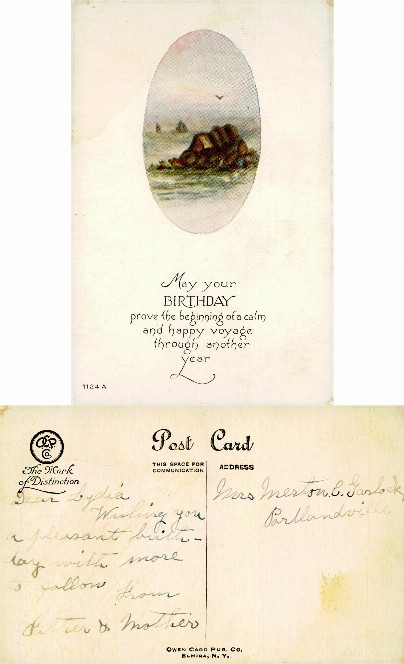 May your
BIRTHDAY
prove the beginning of a calm
and happy voyage
through another
year
1124 A
The Mark
of Distinction
Post Card
THIS SPACE FOR
COMMUNICATION
ADDRESS
Dear Lydia
Wishing you
a pleasant birth-
day with more
to follow
from
Father & Mother
Mrs Merton C. Garlock
Portlandville
OWEN CARD PUB. CO.
ELMIRA, N. Y.